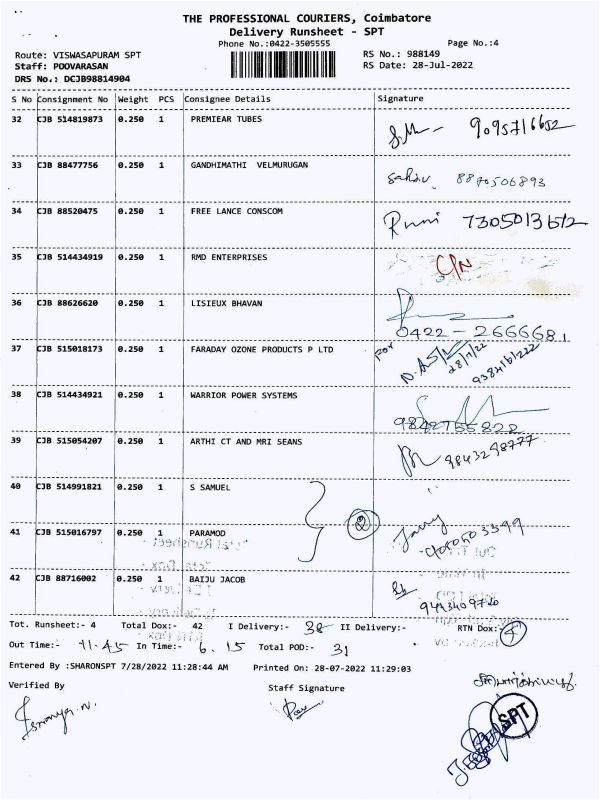 THE PROFESSIONAL COURIERS, Coimbatore
Delivery Runsheet - SPT
Phone No.:0422-3505555
Page No.:4
Route: VISWASAPURAM SPT
RS No.: 988149
Staff: POOVARASAN
RS Date: 28-Jul-2022
DRS No.: DCJB98814904
S No Consignment No Weight PCS Consignee Details Signature
32 CJB 514819873 0.250 1 PREMIEAR TUBES
9095716652
33 CJB 88477756 0.250 1 GANDHIMATHI VELMURUGAN
8870506893
34 CJB 88520475 0.250 1 FREE LANCE CONSCOM
7305013612
35 CJB 514434919 0.250 1 RMD ENTERPRISES
C/N
36 CJB 88626620 0.250 1 LISIEUX BHAVAN
0422-2666681
37 CJB 515018173 0.250 1 FARADAY OZONE PRODUCTS P LTD
For
28/7/22
9384161222
38 CJB 514434921 0.250 1 WARRIOR POWER SYSTEMS
9842755822
39 CJB 515054207 0.250 1 ARTHI CT AND MRI SEANS
9843298777
40 CJB 514991821 0.250 1 S SAMUEL
2
41 CJB 515016797 0.250 1 PARAMOD
42 CJB 88716002 0.250 1 BAIJU JACOB
Tot. Runsheet:- 4 Total Dox:- 42 I Delivery:- 38 II Delivery:- RTN Dox:- 4
Out Time:- 11.45 In Time:- 6.15 Total POD:- 31
Entered By :SHARONSPT 7/28/2022 11:28:44 AM Printed On: 28-07-2022 11:29:03
Verified By Staff Signature
SPT